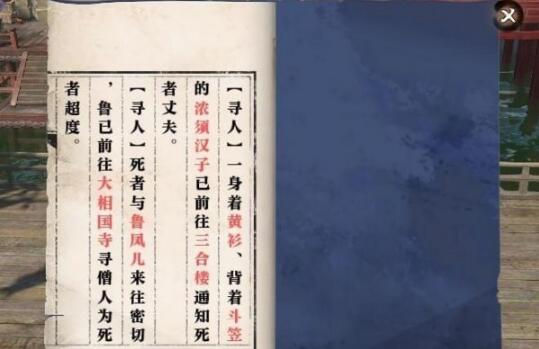 【寻人】一身着黄衫、背着斗笠
的浓须汉子已前往三合楼通知死
者丈夫。
【寻人】死者与鲁凤儿来往密切
，鲁已前往大相国寺寻僧人为死
者超度。